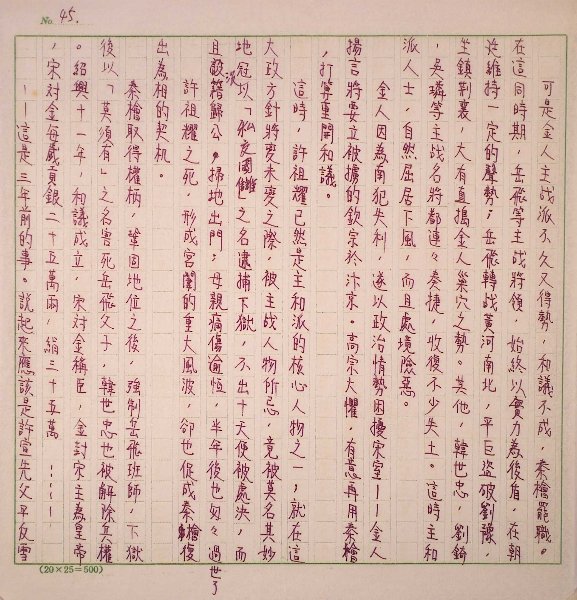 No. 45.
可是金人主战派不久又得勢，和議不成，秦檜罷職。
在這同時期，岳飛等主战將領，始終以實力為後盾，在朝
廷維持一定的聲勢；岳飛轉战黃河南北，平巨盜破劉豫，
坐鎮荊襄，大有直搗金人巢穴之勢。其他，韓世忠，劉錡
，吳璘等主战名將都連々奏捷，收復不少失土。這時主和
派人士，自然屈居下風，而且處境險惡。
金人因為南犯失利，遂以政治情勢困擾宋室——金人
揚言將要立被擄的欽宗於汴京。高宗大懼，有意再用秦檜
，打算重開和議。
這時，許祖耀已然是主和派的核心人物之一，就在這
大政方針將變未變之際，被主战人物所忌，竟被莫名其妙
地冠以「私通國讎」之名逮捕下獄，不出十天便被處決，而
且設籍歸公，掃地出門；母親痛傷逾恒，半年後也匆々過世了
許祖耀之死，形成宮闈的重大風波，卻也促成秦檜復
出為相的契机。
秦檜取得權柄，鞏固地位之後，強制岳飛班師，下獄
後以「莫須有」之名害死岳飛父子，韓世忠也被解除兵權
。紹興十一年，和議成立，宋対金稱臣，金封宋主為皇帝
，宋対金每歲貢銀二十五萬兩，絹二十五萬……
——這是三年前的事。說起來應該是許宣先父平反雪
(20×25=500)